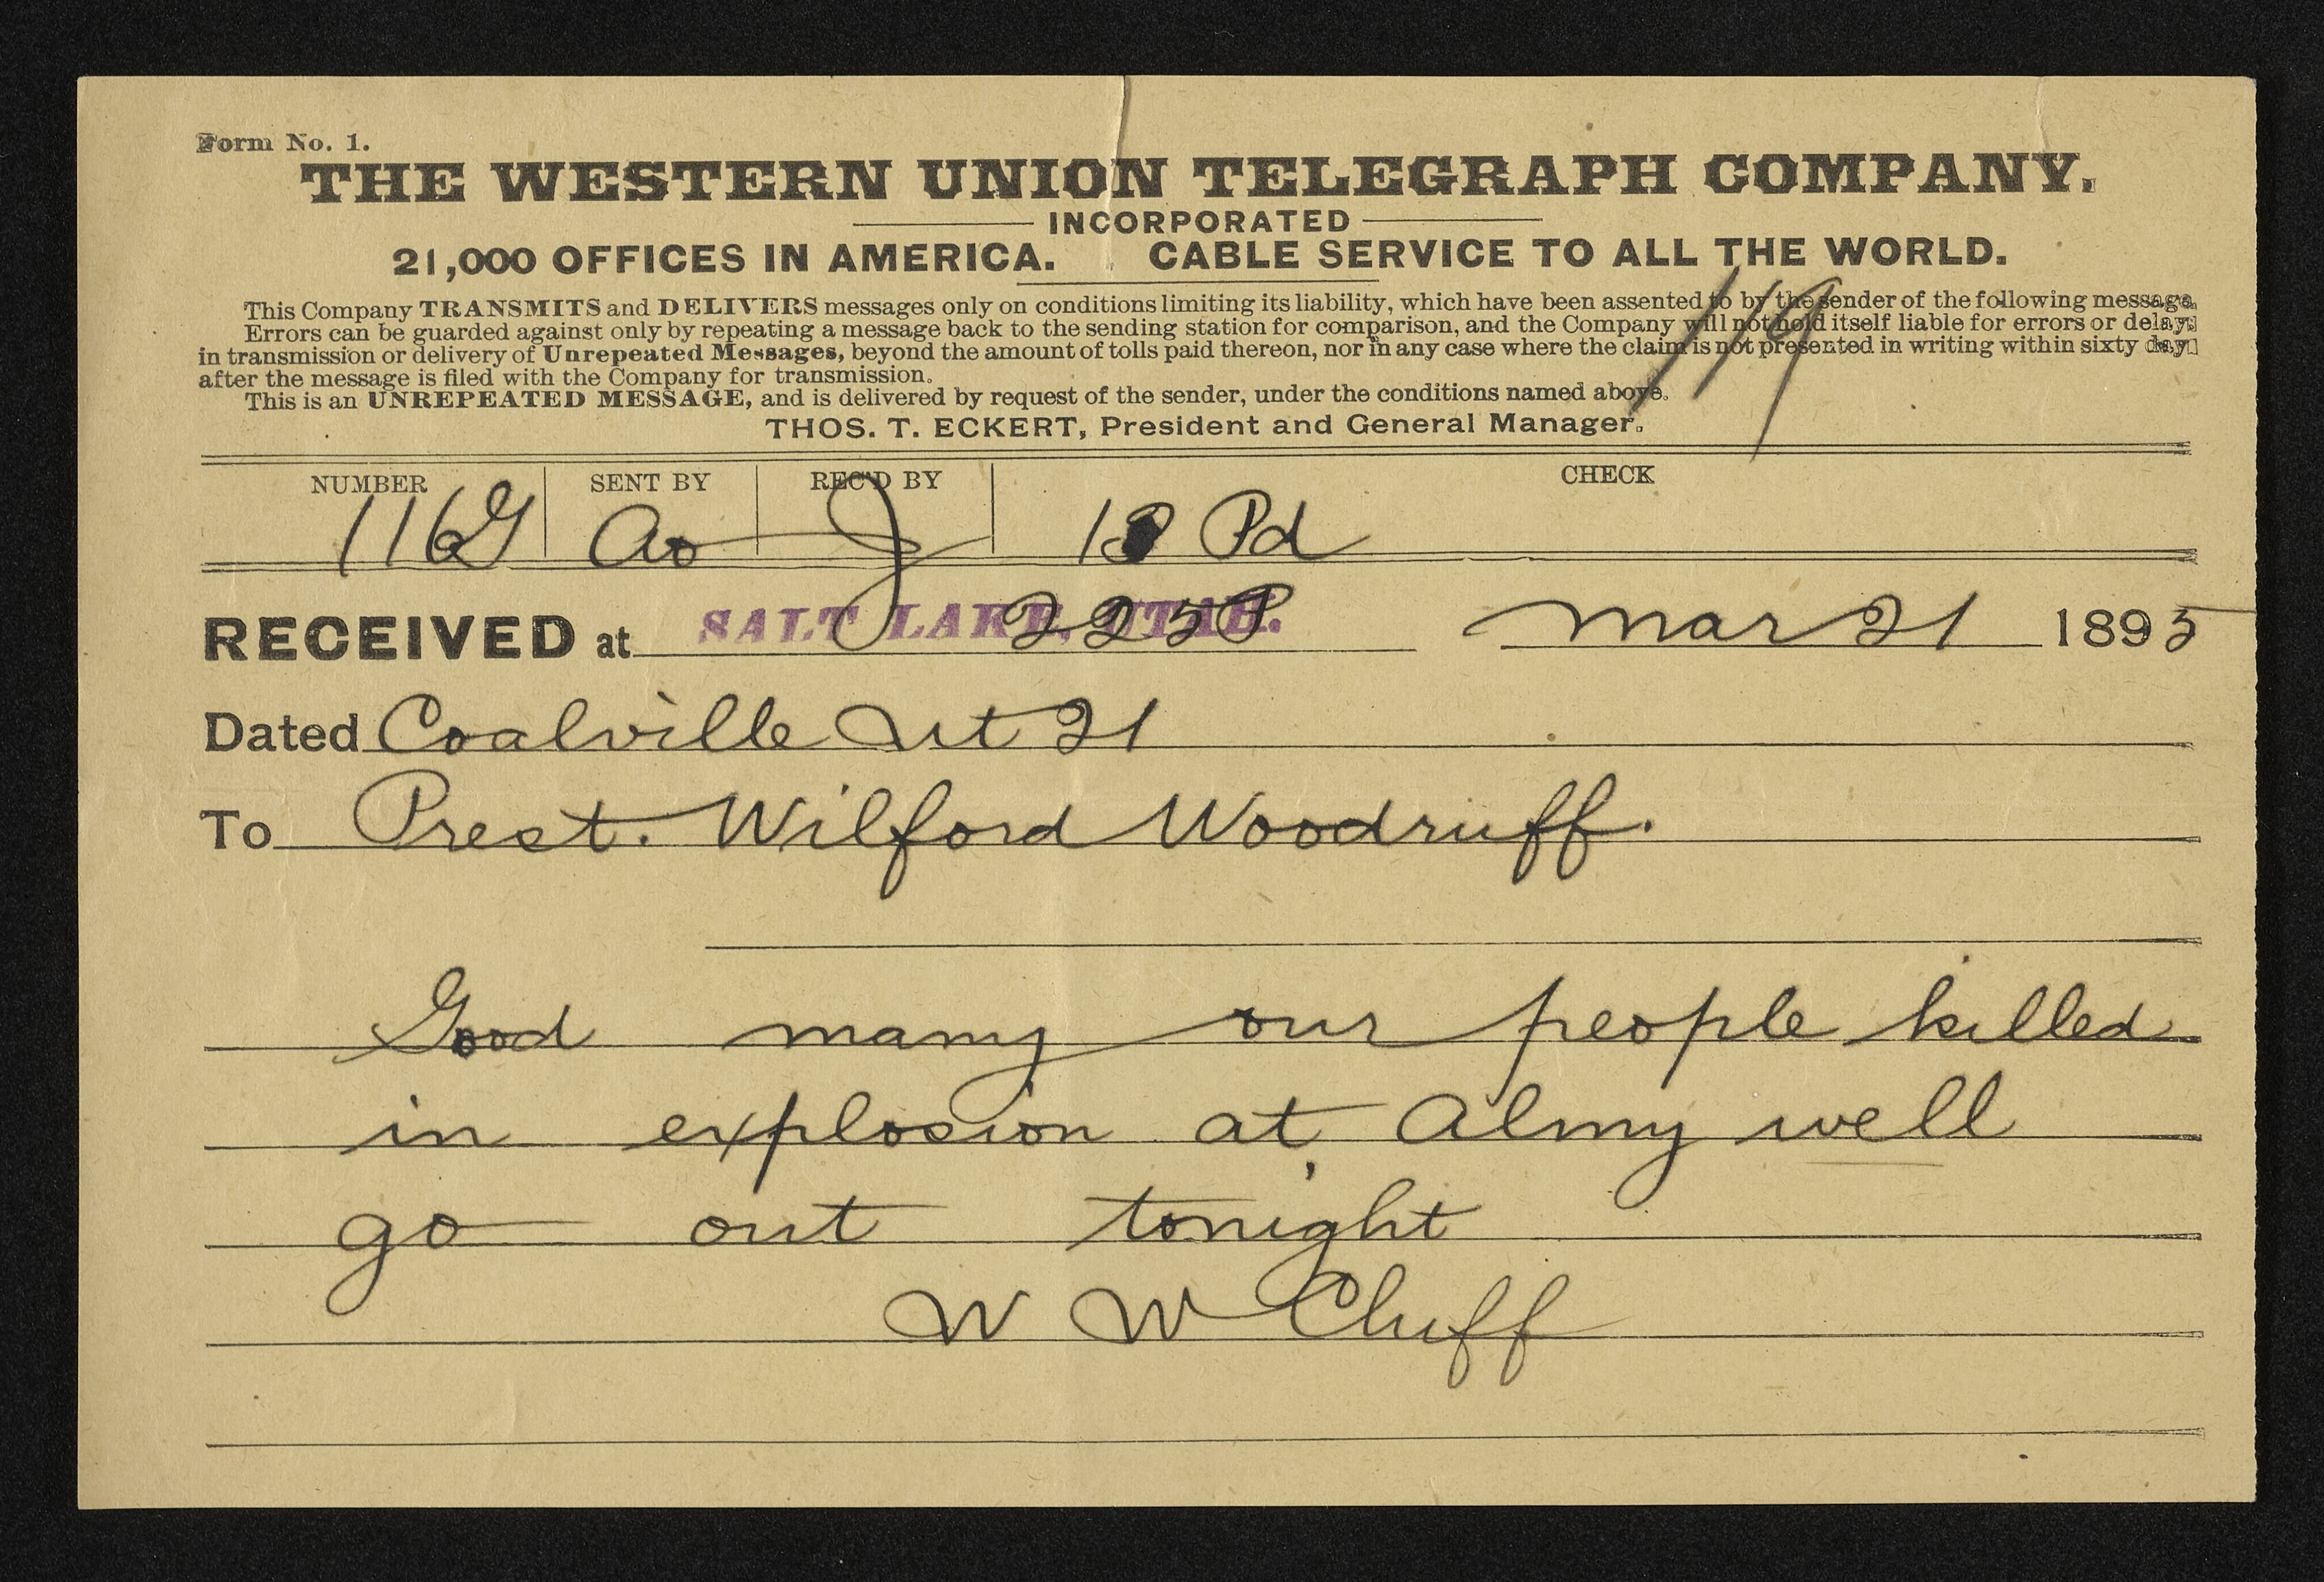 Form No. 1.
THE WESTERN UNION TELEGRAPH COMPANY.
INCORPORATED
21,000 OFFICES IN AMERICA. CABLE SERVICE TO ALL THE WORLD.
This Company TRANSMITS and DELIVERS messages only on conditions limiting its liability, which have been assented to by the sender of the following message.
Errors can be guarded against only by repeating a message back to the sending station for comparison, and the Company will not hold itself liable for errors or delays
in transmission or delivery of Unrepeated Messages, beyond the amount of tolls paid thereon, nor in any case where the claim is not presented in writing within sixty days
after the message is filed with the Company for transmission.
This is an UNREPEATED MESSAGE, and is delivered by request of the sender, under the conditions named above.
119
THOS. T. ECKERT, President and General Manager.
NUMBER SENT BY REC'D BY CHECK
116 G Ao J Pd
RECEIVED at SALT LAKE, UTAH. 225P Mar 21 1895
Dated Coalville Ut 21
To Prest. Wilford Woodruff.
Good many our people killed
in explosion at Almy well
go out tonight
W W Cluff